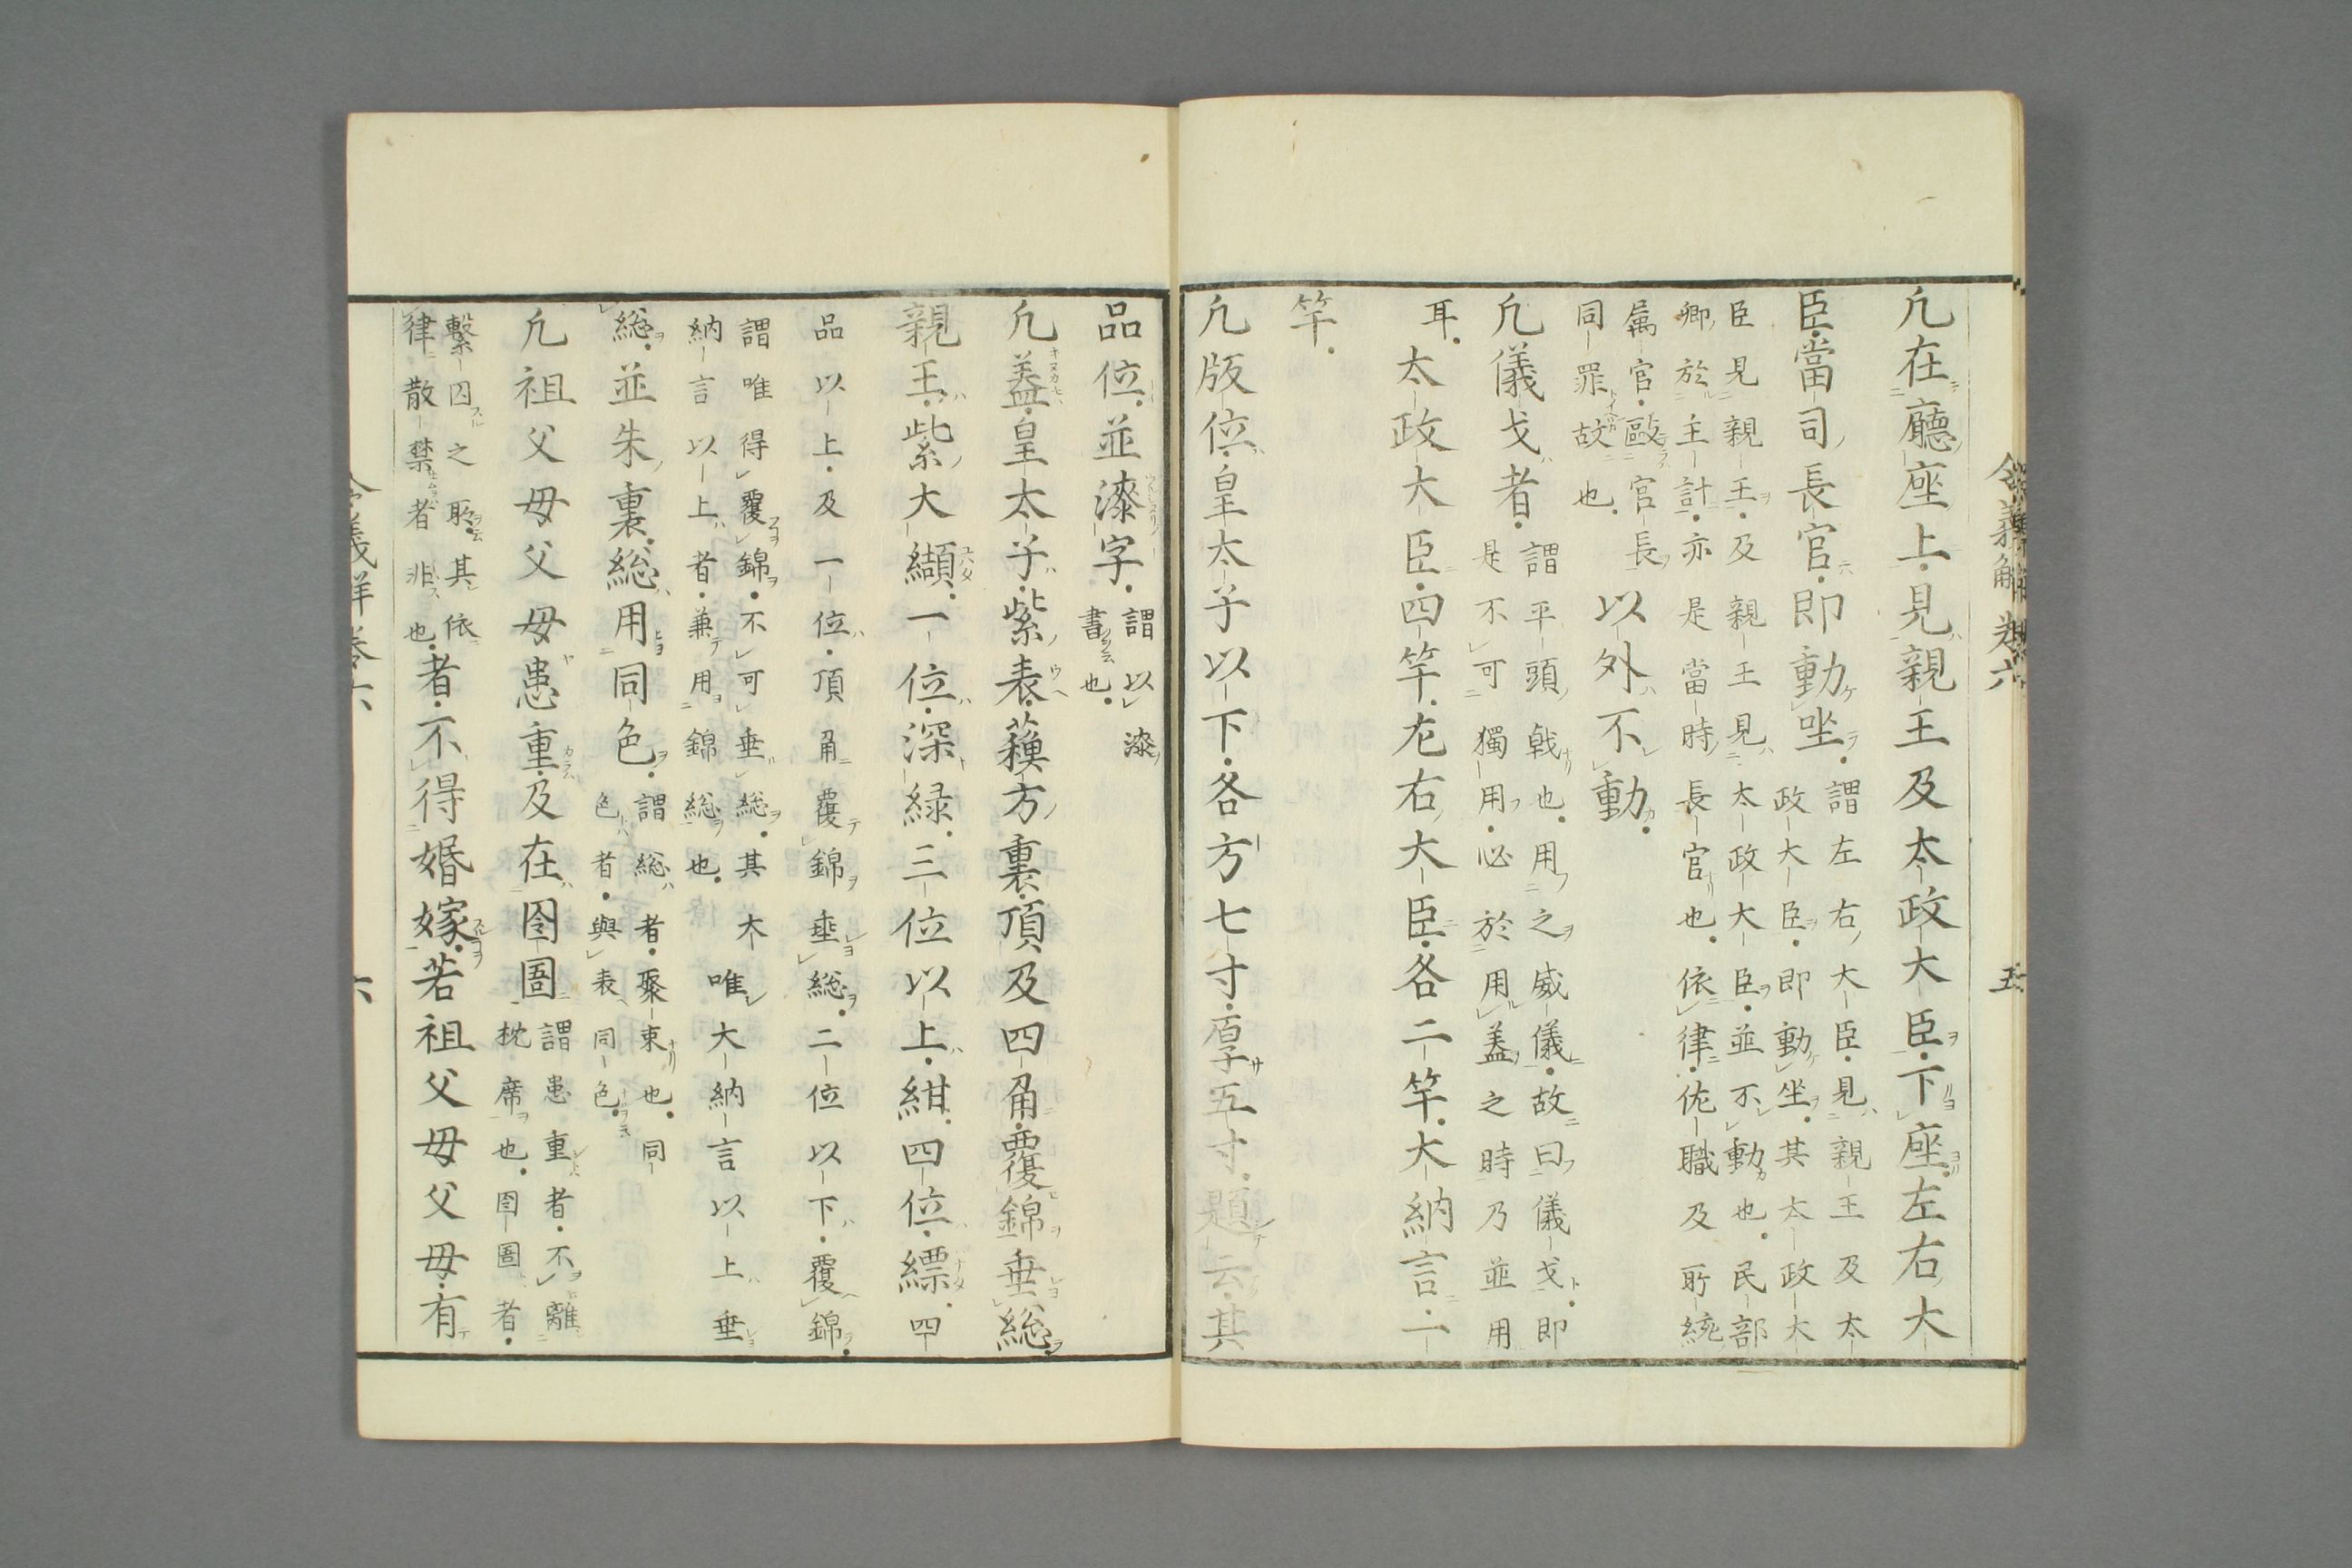 令義解卷六 五
凢在廳座上見親王及太政大臣下座左右大
臣當司長官即動坐謂左右大臣見親王及太
政大臣即動坐其太政大
臣見親王及親王見太政大臣並不動也民部
卿於主計亦是當時長官也依律佐職及所統
属官毆官長
同罪故也以外不動
凢儀戈者謂平頭戟也用之威儀故曰儀戈即
是不可獨用必於用蓋之時乃並用
耳太政大臣四竿左右大臣各二竿大納言一
竿
凢版位皇太子以下各方七寸厚五寸題云其
品位並漆字謂以漆
書也
凢蓋皇太子紫表蘓方裏頂及四角覆錦垂総
親王紫大纈一位深緑三位以上紺四位縹四
品以上及一位頂角覆錦垂総二位以下覆錦
謂唯得覆錦不可垂総其大
納言以上者兼用錦総也唯大納言以上垂
総並朱裏総用同色謂総者聚束也同
色者與表同色
凢祖父母父母患重及在囹圄謂患重者不離
枕席也囹圄者
繫囚之所其依
律散禁者非也者不得婚嫁若祖父母父母有
令義解卷六 六